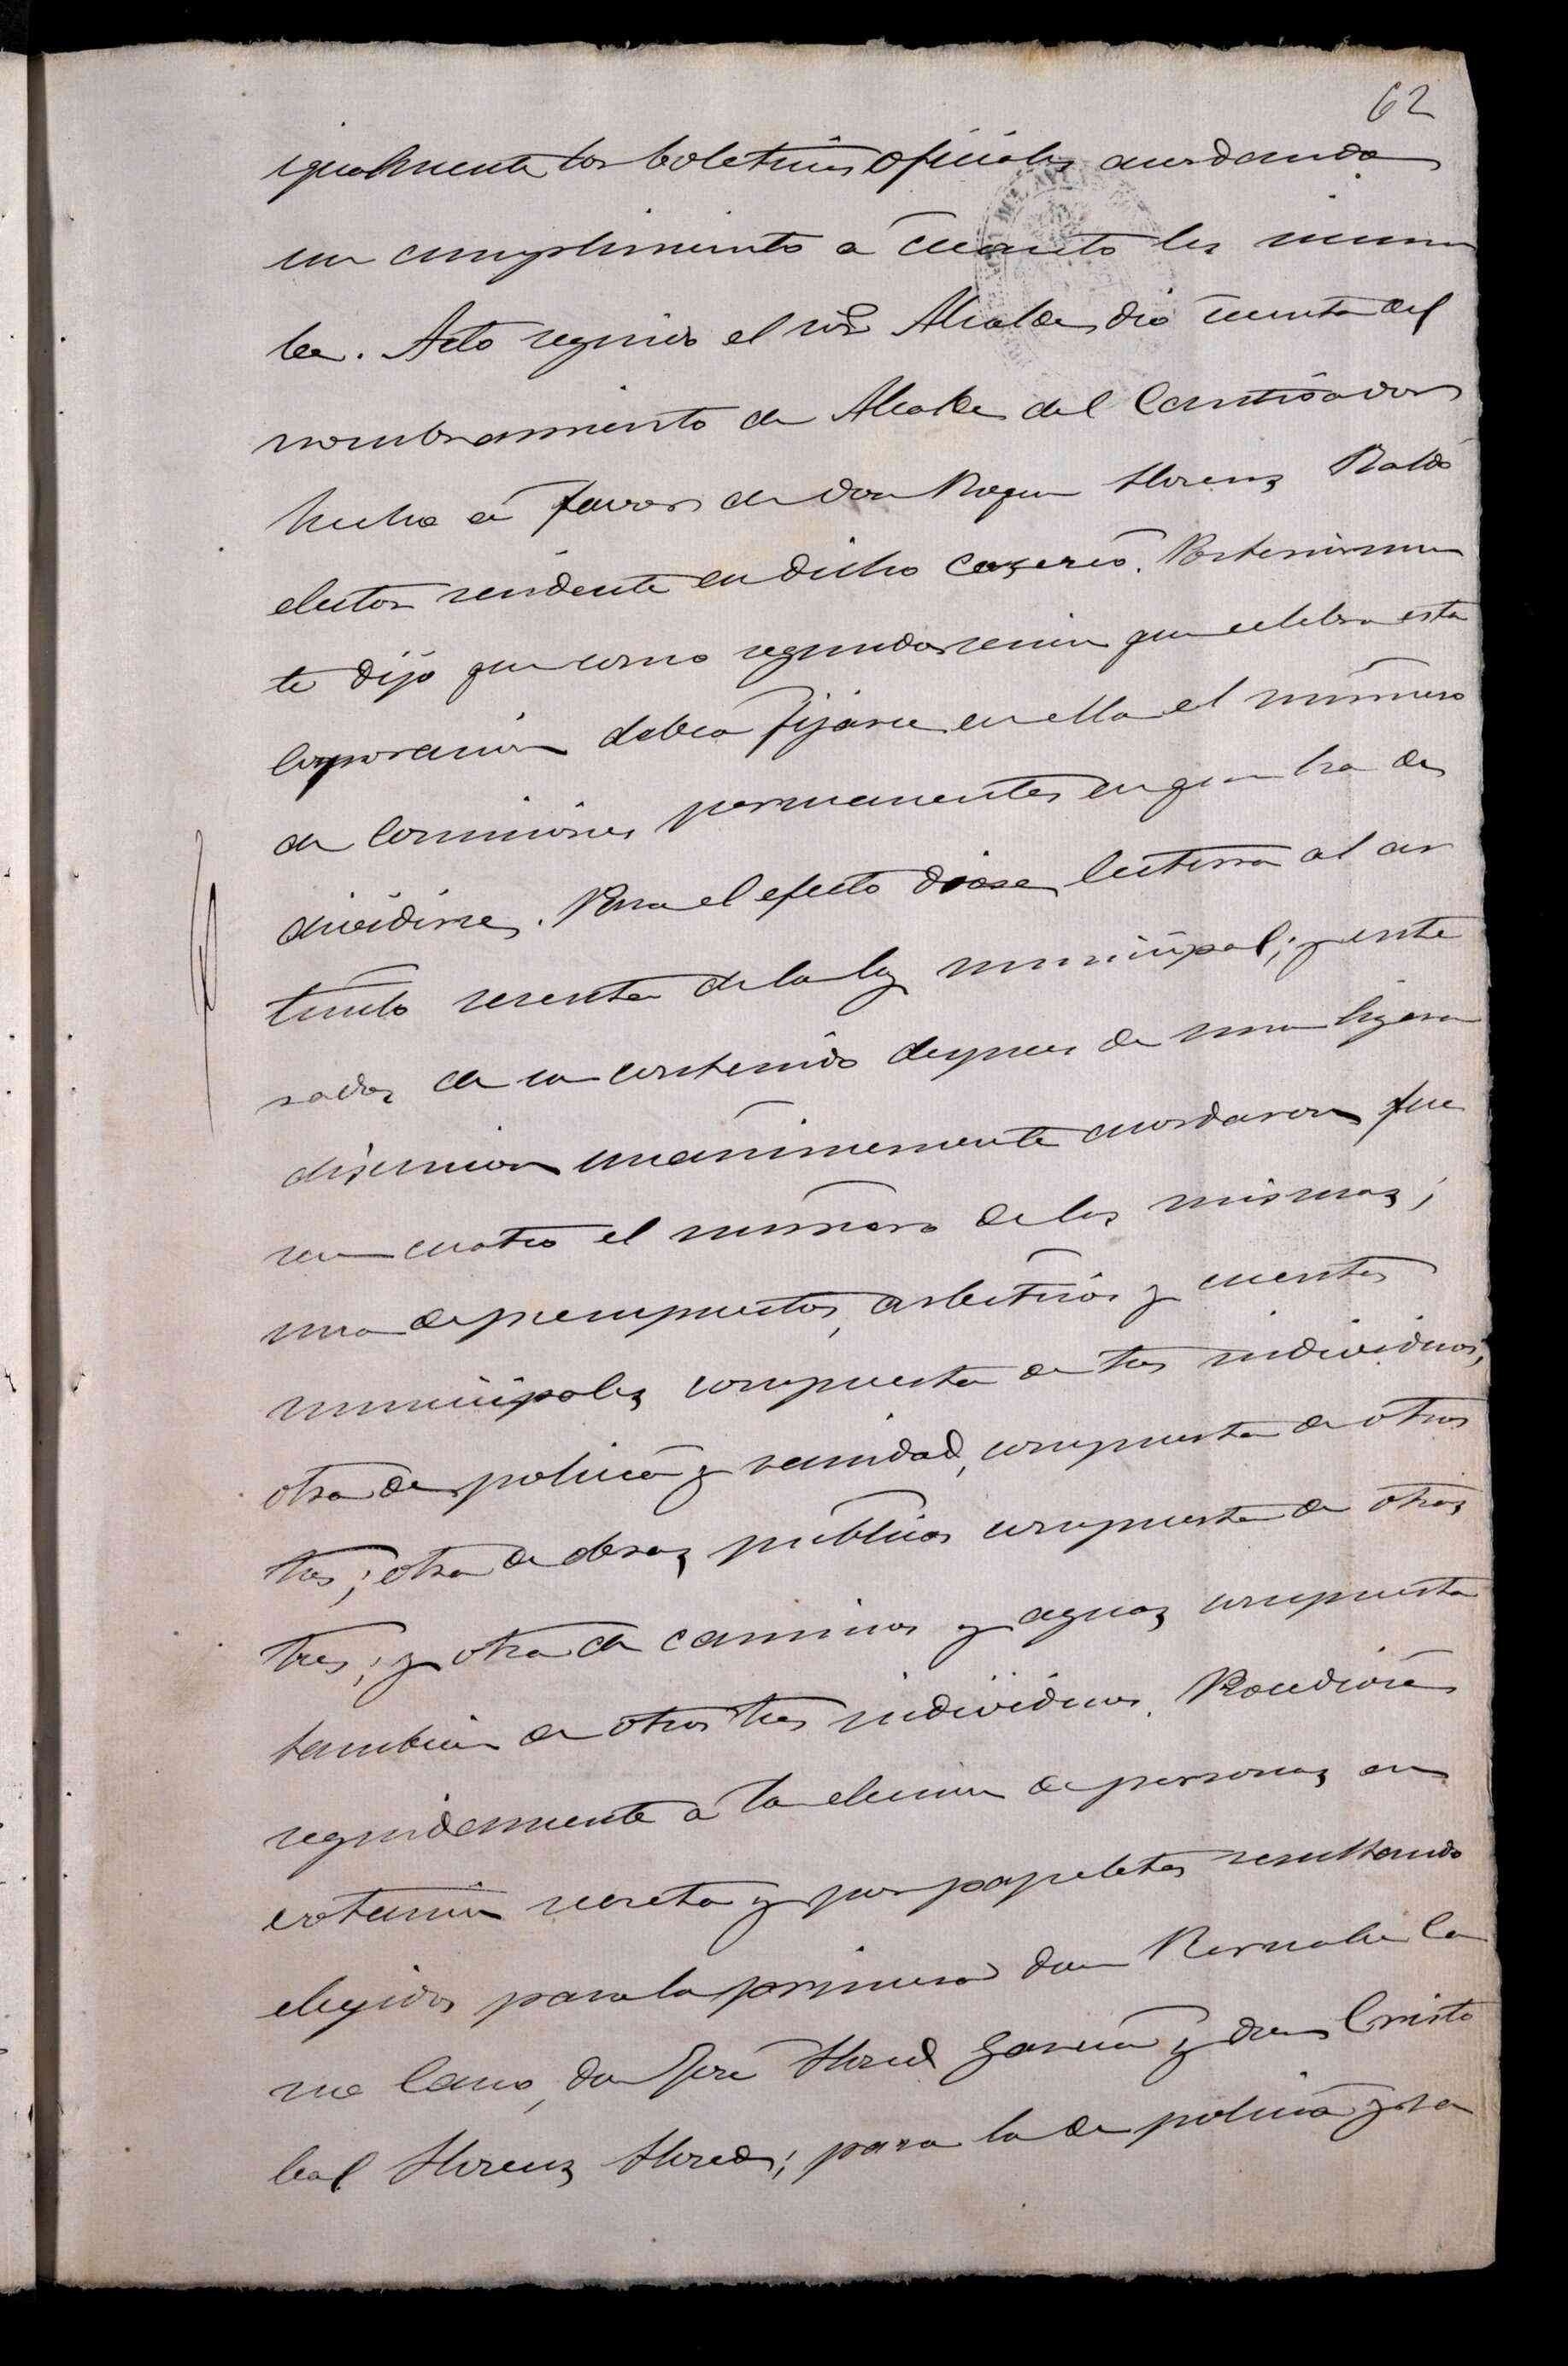 62
igualmente los boletines oficiales acordando
su cumplimiento á cuanto les incum
be. Acto seguido el sor Alcalde dió cuenta del
nombramiento de Alcalde del Cantisador
hecho á favor de don Roque Llorens
elector residente en dicho caserio. Posteriormen
te dijo que como segunda sesion que celebra esta
Corporacion debia fijarse en ella el número
de Comisiones permanentes en que ha de
dividirse. Para el efecto dióse lectura al ar
tículo sesenta de la ley municipal; y ente
rados de su contenido despues de una ligera
discusion unánimemente acordaron fue
sen cuatro el número de las mismas;
una de presupuestos, arbitrios y cuentas
municipales compuesta de tres individuos;
otra de policía y sanidad, compuesta de otros
tres; otra de obras públicas compuesta de otros
tres; y otra de caminos y aguas compuesta
tambien de otros tres individuos. Procedióse
seguidamente á la eleccion de personas en
votacion secreta y por papeletas resultando
elegidos para la primera don Bernabe Ca
no Cano, don José Llored Garcia y don Cristo
bal Llorens Llored; para la de policía y sa